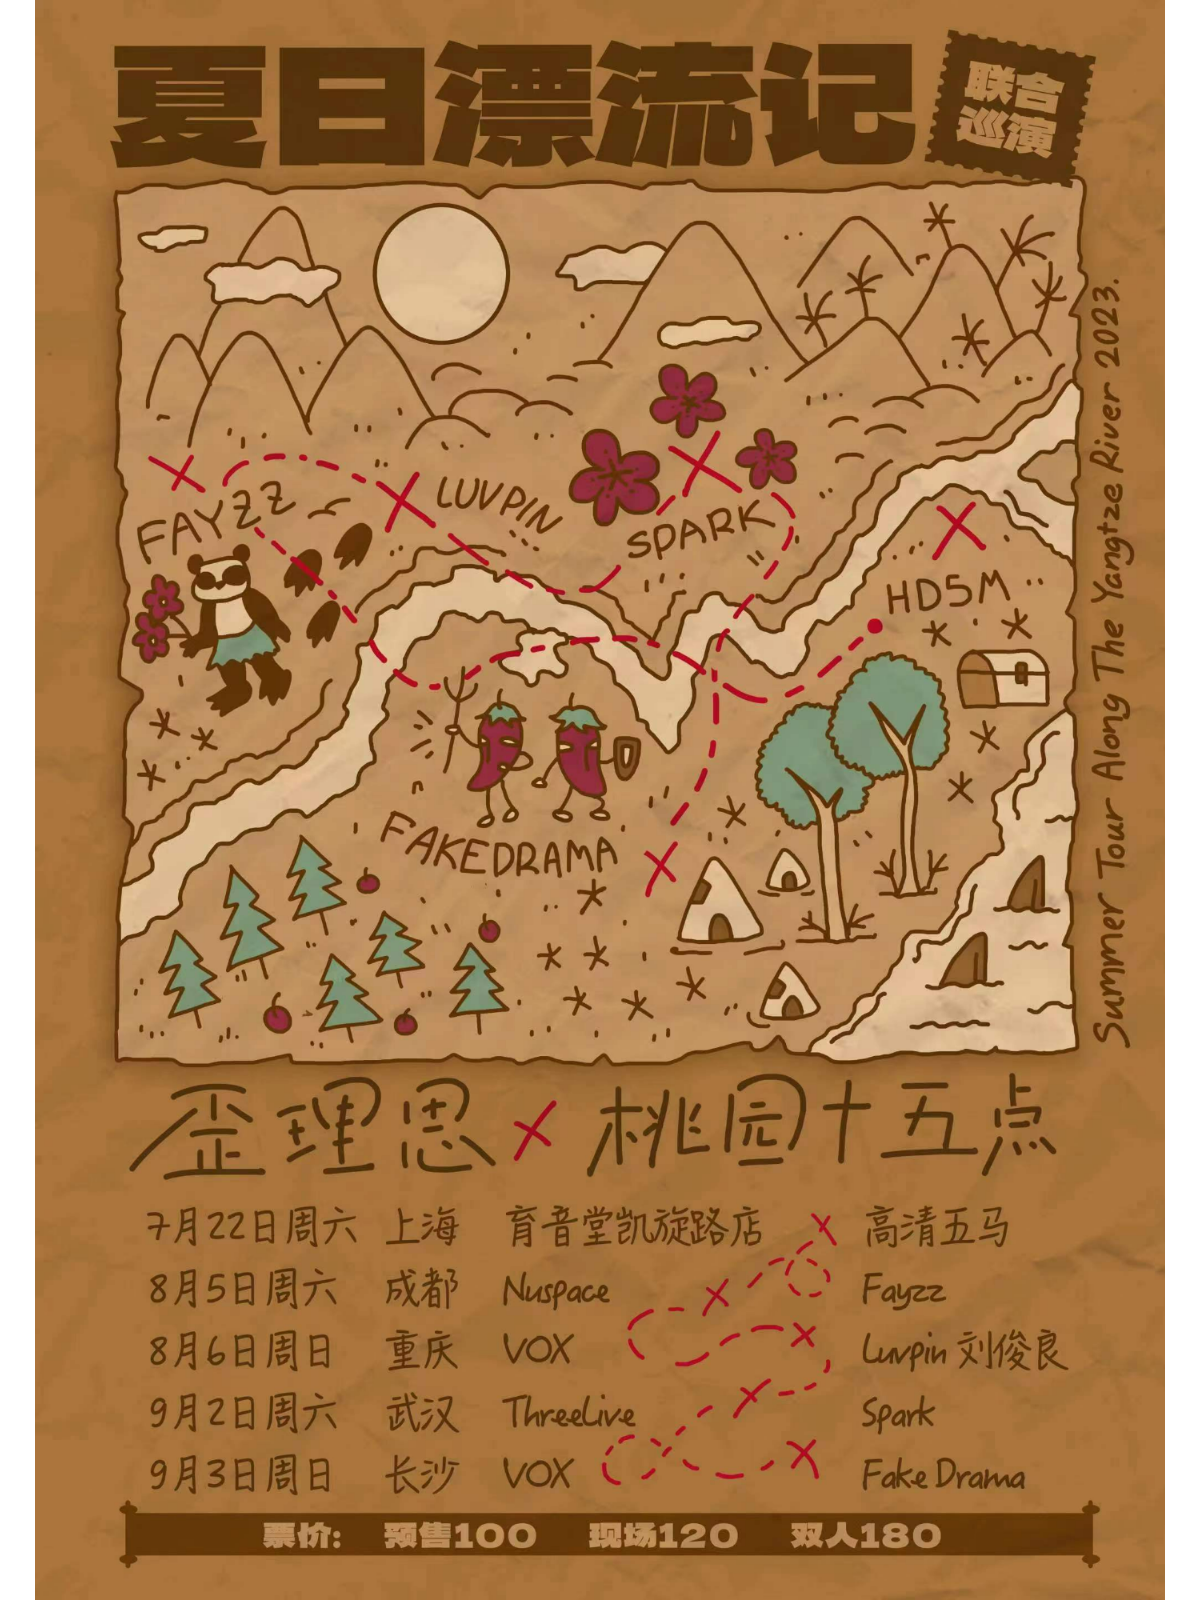 夏日漂流记
联合
巡演
FAYZZ
LUVPIN
SPARK
HD5M
FAKEDRAMA
Summer Tour Along The Yangtze River 2023.
歪理思 × 桃园十五点
7月22日周六 上海 育音堂凯旋路店 高清五马
8月5日周六 成都 Nuspace Fayzz
8月6日周日 重庆 VOX Luvpin 刘俊良
9月2日周六 武汉 ThreeLive Spark
9月3日周日 长沙 VOX Fake Drama
票价: 预售100 现场120 双人180